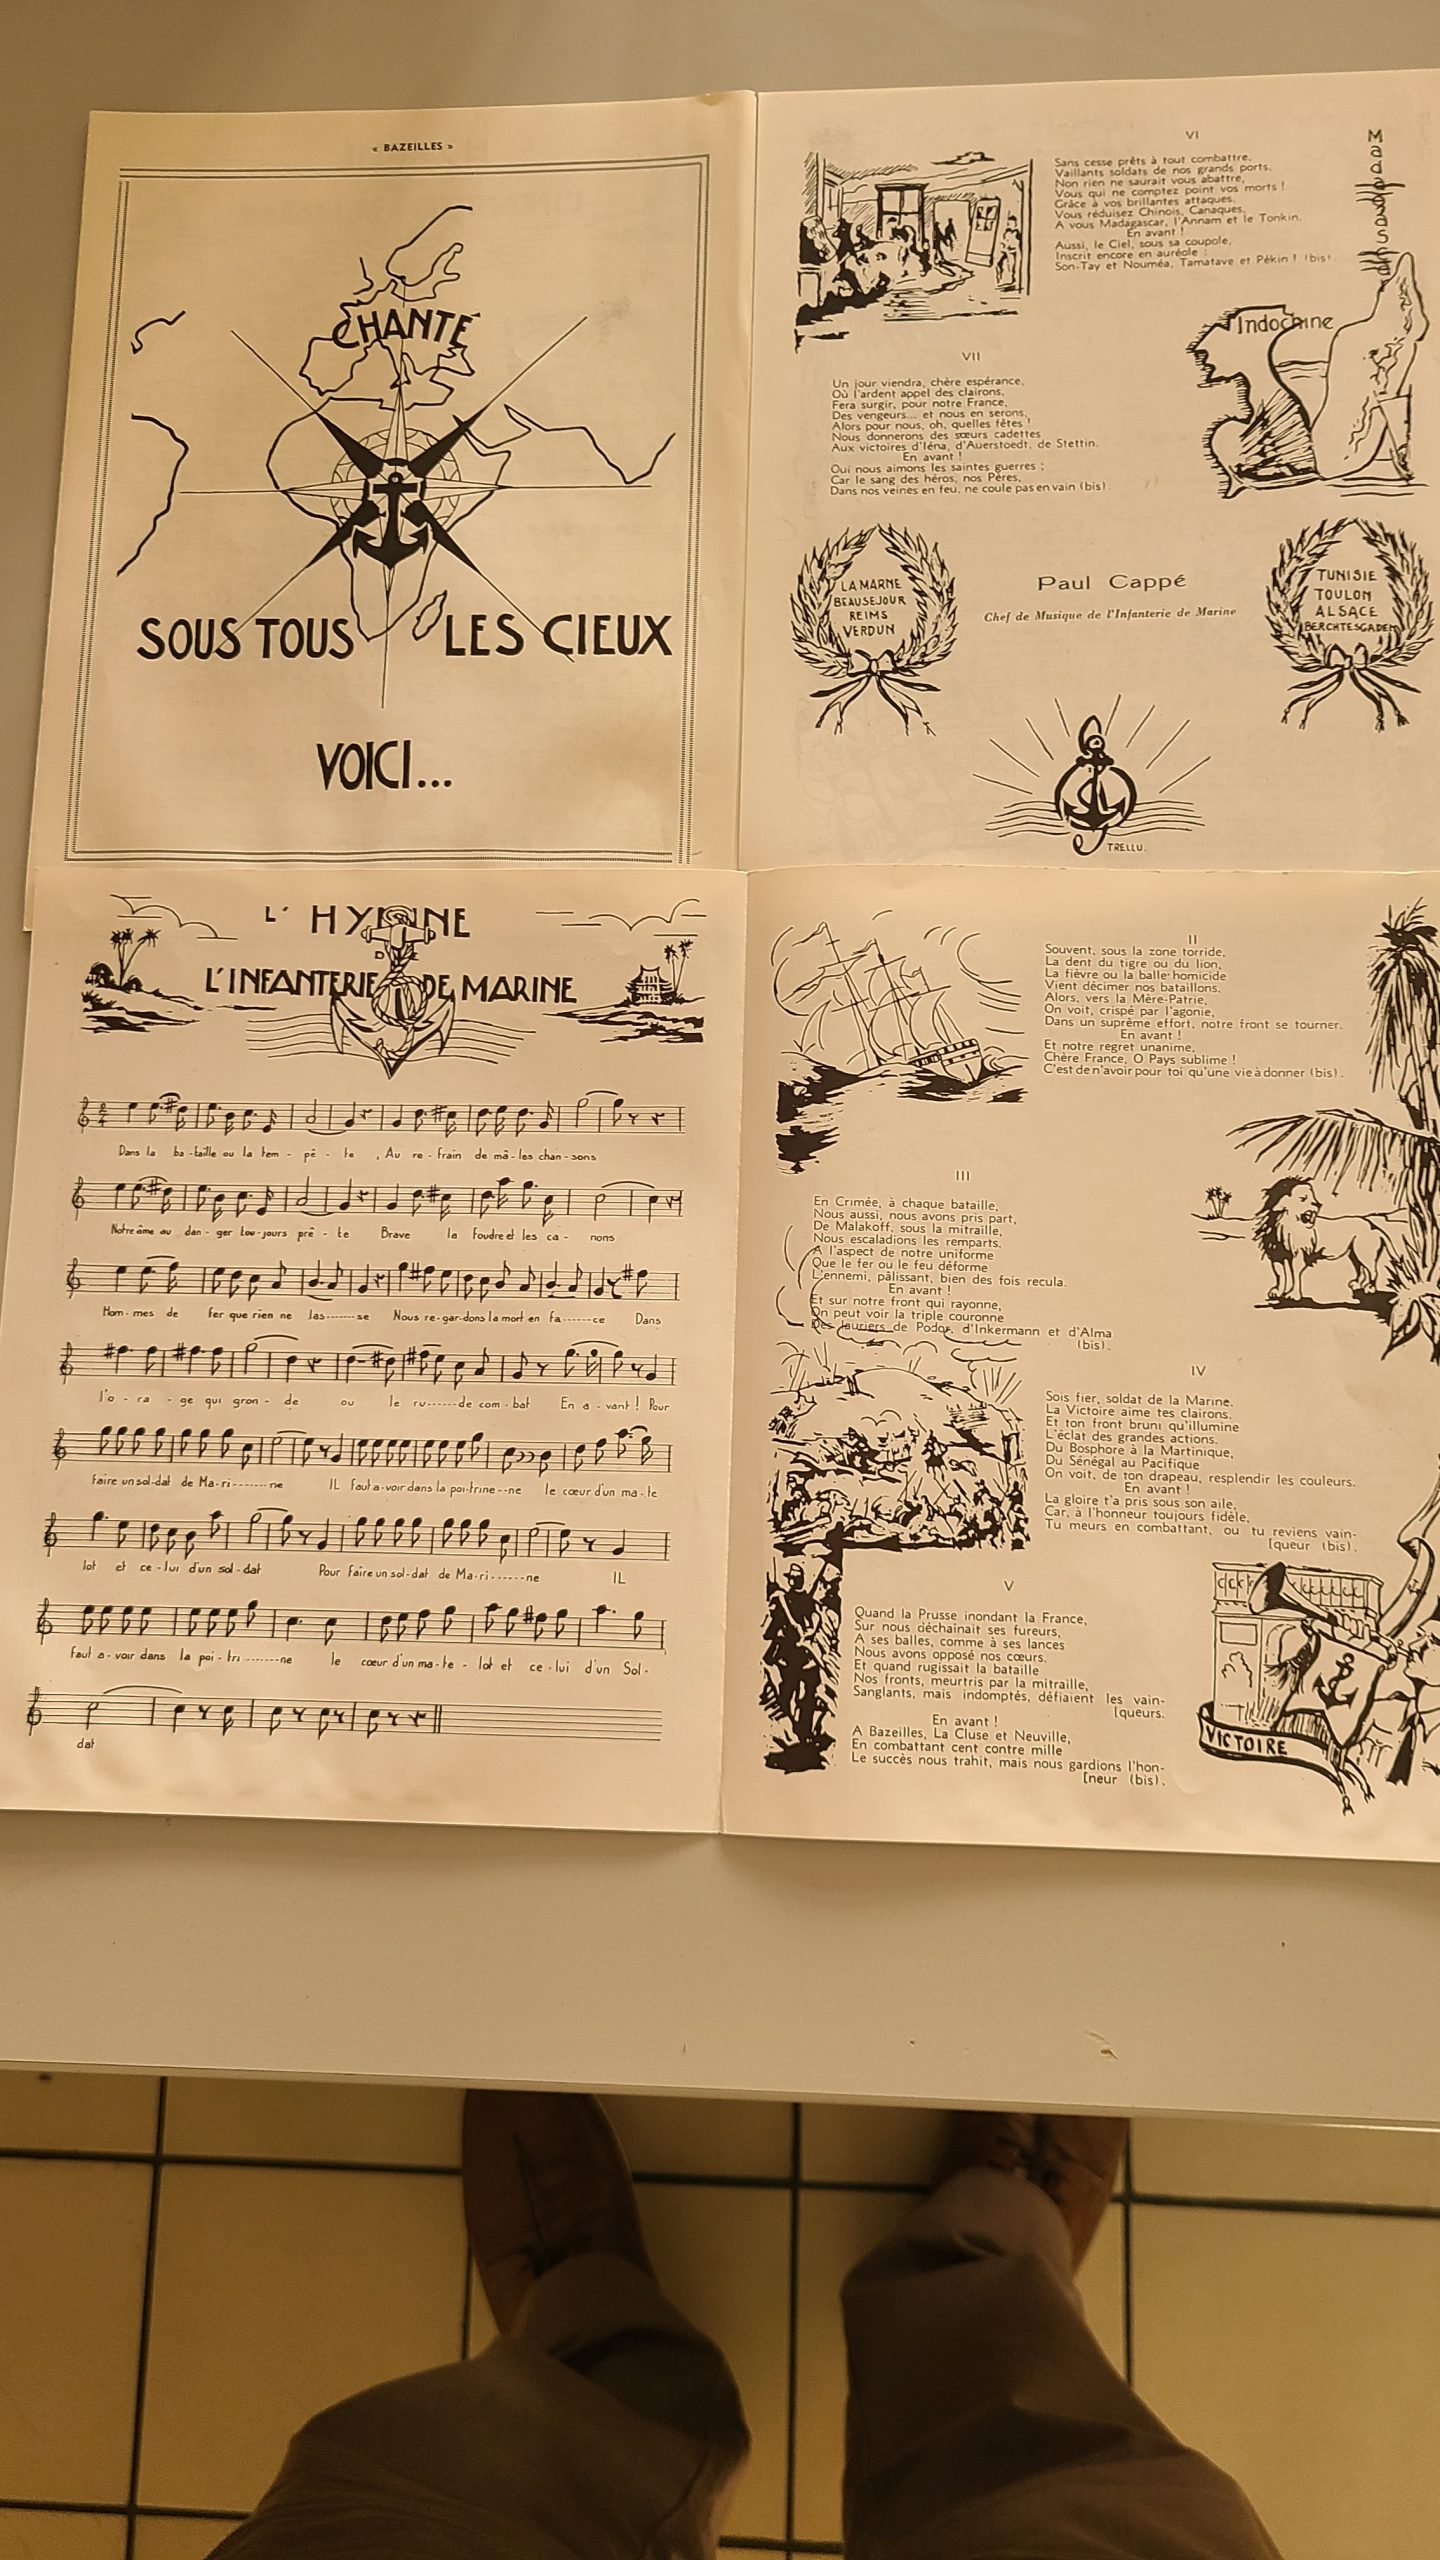 « BAZEILLES »
CHANTÉ
SOUS TOUS LES CIEUX
VOICI...
VI
Sans cesse prêts à tout combattre,
Vaillants soldats de nos grands ports,
Non rien ne saurait vous abattre,
Vous qui ne comptez point vos morts !
Grâce à vos brillantes attaques,
Vous réduisez Chinois, Canaques,
A vous Madagascar, l'Annam et le Tonkin.
En avant !
Aussi, le Ciel, sous sa coupole,
Inscrit encore en auréole :
Son-Tay et Nouméa, Tamatave et Pékin ! (bis)
Madagascar
Indochine
VII
Un jour viendra, chère espérance,
Où l'ardent appel des clairons,
Fera surgir, pour notre France,
Des vengeurs... et nous en serons,
Alors pour nous, oh, quelles fêtes !
Nous donnerons des sœurs cadettes
Aux victoires d'Iéna, d'Auerstoedt, de Stettin.
En avant !
Oui nous aimons les saintes guerres ;
Car le sang des héros, nos Pères,
Dans nos veines en feu, ne coule pas en vain (bis)
LA MARNE
BEAUSEJOUR
REIMS
VERDUN
Paul Cappé
Chef de Musique de l'Infanterie de Marine
TUNISIE
TOULON
ALSACE
BERCHTESGADEN
TRELLU.
L' HYMNE
DE
L'INFANTERIE DE MARINE
Dans la ba-taille ou la tem - pê - te , Au re - frain de mâ - les chan - sons
Notre âme au dan - ger tou-jours prê - te Brave la foudre et les ca - nons
Hom - mes de fer que rien ne las-------se Nous re-gar-dons la mort en fa------ce Dans
l'o - ra - ge qui gron - de ou le ru------de com - bat En a - vant ! Pour
faire un sol-dat de Ma-ri-------ne IL faut a-voir dans la poi-trine--ne le cœur d'un ma - te
lot et ce - lui d'un sol - dat Pour faire un sol-dat de Ma-ri------ne IL
faut a - voir dans la poi - tri -------ne le cœur d'un ma - te - lot et ce - lui d'un Sol -
dat
II
Souvent, sous la zone torride,
La dent du tigre ou du lion,
La fièvre ou la balle homicide
Vient décimer nos bataillons.
Alors, vers la Mère-Patrie,
On voit, crispé par l'agonie,
Dans un suprême effort, notre front se tourner.
En avant !
Et notre regret unanime,
Chère France, O Pays sublime !
C'est de n'avoir pour toi qu'une vie à donner (bis).
III
En Crimée, à chaque bataille,
Nous aussi, nous avons pris part,
De Malakoff, sous la mitraille,
Nous escaladions les remparts.
A l'aspect de notre uniforme
Que le fer ou le feu déforme
L'ennemi, pâlissant, bien des fois recula.
En avant !
Et sur notre front qui rayonne,
On peut voir la triple couronne
Des lauriers de Podor, d'Inkermann et d'Alma
(bis).
IV
Sois fier, soldat de la Marine.
La Victoire aime tes clairons.
Et ton front bruni qu'illumine
L'éclat des grandes actions.
Du Bosphore à la Martinique,
Du Sénégal au Pacifique
On voit, de ton drapeau, resplendir les couleurs.
En avant !
La gloire t'a pris sous son aile,
Car, à l'honneur toujours fidèle,
Tu meurs en combattant, ou tu reviens vain-
[queur (bis).
V
Quand la Prusse inondant la France,
Sur nous déchaînait ses fureurs,
A ses balles, comme à ses lances
Nous avons opposé nos cœurs.
Et quand rugissait la bataille
Nos fronts, meurtris par la mitraille,
Sanglants, mais indomptés, défiaient les vain-
[queurs.
En avant !
A Bazeilles, La Cluse et Neuville,
En combattant cent contre mille
Le succès nous trahit, mais nous gardions l'hon-
[neur (bis).
VICTOIRE